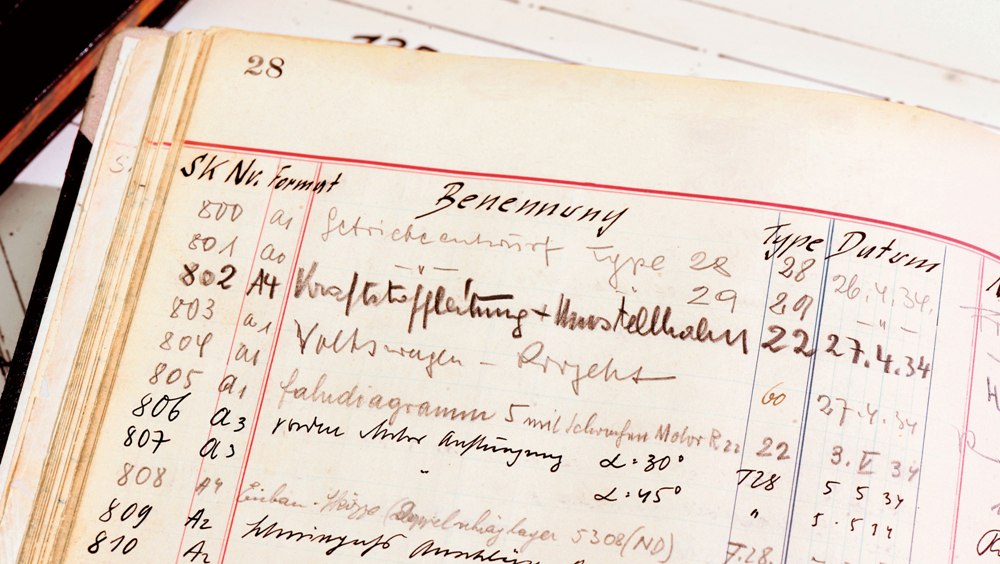 28
SK Nr. Format Benennung Type Datum
800 a1 Getriebeentwurf Type 28 28 26.4.34.
801 a0 — " — 29 29 — " —
802 A4 Kraftstoffleitung + Umstellhahn 22 27.4.34
803 a1 Volkswagen – Projekt 60 27.4.34
804 a1
805 a1 Fahrdiagramm 5 mit Motor R22 22 3.V 34
806 a3 vordere Motor Aufhängung α=30° T28 5 5 34
807 a3 " α=45° " 5.5 34
808 A4 Einbau 5308 (ND) T.28.
809 A2
810 A2